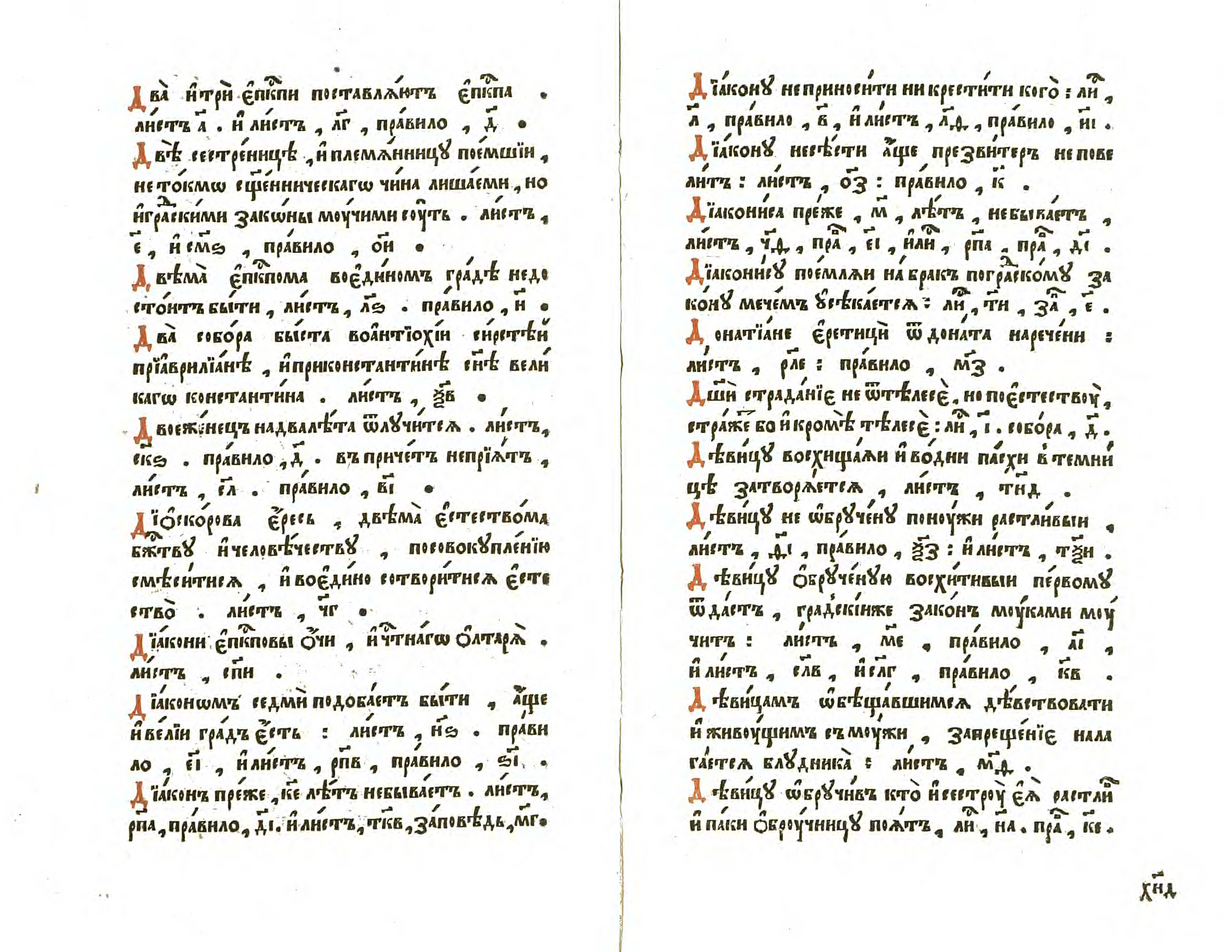 Два̀ и҆трѝ є҆пⷭ҇кпи поставлѧ́ютъ є҆пⷭ҇кпа .
ли́стъ а҃ . и҆ ли́стъ , лг҃ , пра́вило , д҃ .
Двѣ̀ сестре́ницѣ , и҆ племѧ́нницꙋ пое́мшїи ,
не то́кмѡ сщ҃е́нническагѡ чи́на лиша́еми , но
и҆гра́дскими зако́ны мꙋ́чими сꙋ́ть . ли́стъ ,
е҃ , и҆ смѕ҃ , пра́вило , ои҃ .
Двѣма̀ є҆пⷭ҇кпома воє҆ди́номъ гра́дѣ недо
сто́итъ бы́ти , ли́стъ , лѕ҃ . пра́вило , и҃ .
Два̀ собо́ра бы́ста воа҆нтїохі́и си́рстѣй
прїа҆врилїа́нѣ , и҆приконстанти́нѣ сн҃ѣ вели́
кагѡ константи́на . ли́стъ , ѯв҃ .
Двоеже́нецъ надвалѣ́та ѿлꙋчи́тсѧ . ли́стъ ,
скѕ҃ . пра́вило , д҃ . въ приче́тъ непрїѧ́тъ ,
ли́стъ , сл҃ . пра́вило , в҃і .
Дїо҆ско́рова є҆́ресь , двѣма̀ є҆стество́ма
бж҃твꙋ̀ и҆человѣ́чествꙋ , посовокꙋпле́нїю
смѣси́тисѧ , и҆ воє҆ди́но сотвори́тисѧ є҆сте
ство̀ . ли́стъ , чг҃ .
Дїа́кони є҆пⷭ҇кповы о҆́чи , и҆ чⷭ҇тна́гѡ о҆лтарѧ̀ .
ли́стъ , спи҃ .
Дїа́кѡномъ седмѝ подоба́етъ бы́ти , а҆́ще
и҆ ве́лїи гра́дъ є҆́сть : ли́стъ , нѕ҃ . пра́ви
ло , є҃і , и҆ ли́стъ , рпв҃ , пра́вило , ѕ҃і .
Дїа́конъ пре́же , ке҃ лѣ́тъ небыва́етъ . ли́стъ ,
рпа҃ , пра́вило , д҃і . и҆ ли́стъ , ткв҃ , за́повѣдь , мг҃ .
Дїа́конꙋ неприноси́ти ни крести́ти кого̀ : лиⷭ҇ ,
л҃ , пра́вило , в҃ , и҆ ли́стъ , лд҃ , пра́вило , и҃і .
Дїа́конꙋ несѣ́сти а҆́ще презви́теръ не пове
ли́тъ : ли́стъ , оз҃ : пра́вило , к҃ .
Дїакони́са пре́же , м҃ , лѣ́тъ , небыва́етъ ,
ли́стъ , чд҃ , праⷡ҇ , є҃і , и҆лиⷭ҇ , рпа҃ , праⷡ҇ , д҃і .
Дїакони́сꙋ пое́млѧи на́ бракъ погра́дскомꙋ за
ко́нꙋ мече́мъ ᲂу҆сѣка́етсѧ : лиⷭ҇ , ти҃ , заⷱ҇ , е҃ .
Донатїа́не є҆рети́цѝ ѿ дона́та нарече́ни :
ли́стъ , рле҃ : пра́вило , мз҃ .
Дш҃и́ страда́нїє не ѿтѣлесѐ , но поє҆стествꙋ̀ ,
стра́же бо и҆ кромѣ̀ тѣлесѐ : лиⷭ҇ , і҃ . собо́ра , д҃ .
Дѣви́цꙋ восхища́ѧи и҆ во́дни па́схи в̾ темни́
цѣ затворѧ́етсѧ , ли́стъ , тнд҃ .
Дѣви́цꙋ не ѡ҆брꙋче́нꙋ понꙋ́жи растли́выи ,
ли́стъ , д҃і , пра́вило , ѯз҃ : и҆ ли́стъ , тѯи҃ .
Дѣви́цꙋ ѻ҆брꙋче́нꙋю восхи́тивыи пе́рвомꙋ
ѿда́стъ , гра́дскїиже зако́нъ мꙋ́ками мꙋ́
читъ : ли́стъ , ме҃ , пра́вило , а҃і ,
и҆ ли́стъ , слв҃ , и҆ слг҃ , пра́вило , кв҃ .
Дѣви́цамъ ѡ҆бѣща́вшимсѧ дѣ́вствовати
и҆ живꙋ́щимъ съ мꙋ́жи , запреще́нїє нала
га́етсѧ блꙋдника̀ : ли́стъ , мд҃ .
Дѣви́цꙋ ѡ҆брꙋчи́въ кто̀ и҆ сестрꙋ̀ є҆ѧ̀ растли́
и҆ па́ки ѻ҆брꙋ́чницꙋ поѧ́тъ , лиⷭ҇ , на҃ . праⷡ҇ , ке҃ .
хн҃д